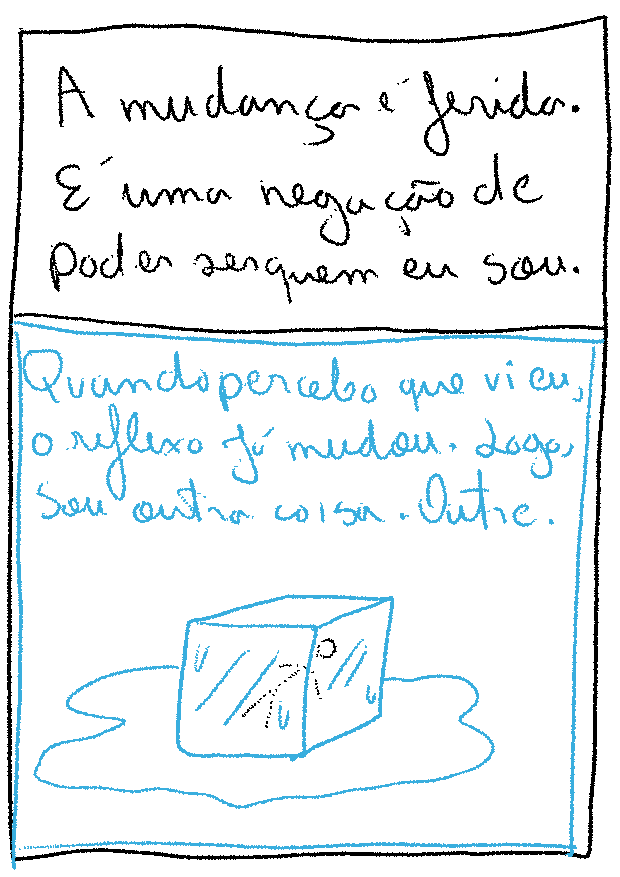 A mudança é ferida.
É uma negação de
poder ser quem eu sou.
Quando percebo que vi eu,
o reflexo já mudou. Logo,
sou outra coisa. Outre.